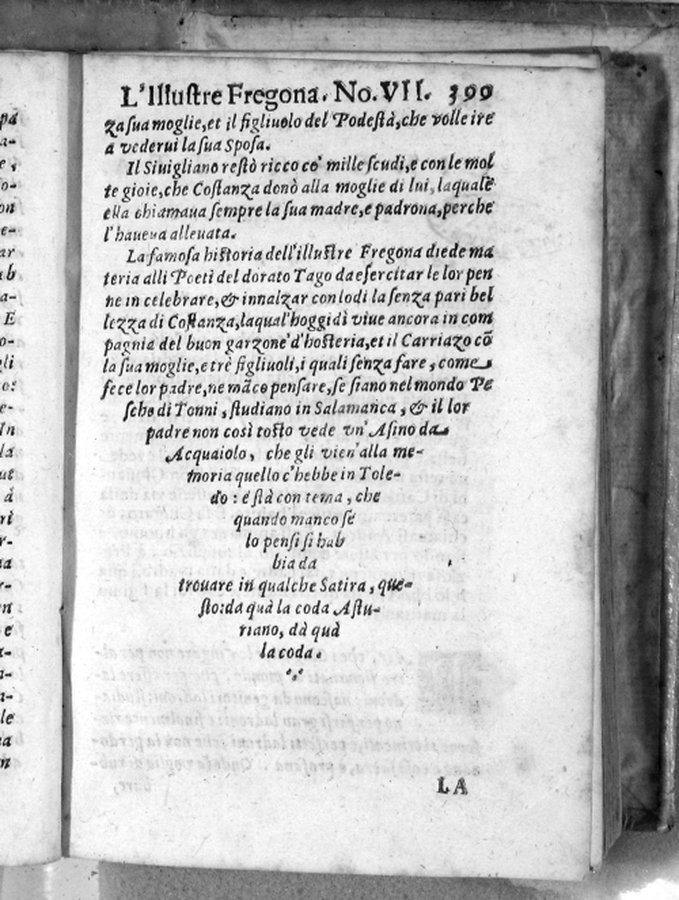 L'Illustre Fregona. No. VII. 399
za sua moglie, et il figliuolo del Podestà, che volle ire
a vederui la sua Sposa.
Il Siuigliano restò ricco cō mille scudi, e con le mol
te gioie, che Costanza donò alla moglie di lui, laquale
ella chiamaua sempre la sua madre, e padrona, perche
l'haueua alleuata.
La famosa historia dell'illustre Fregona diede ma
teria alli Poeti del dorato Tago da esercitar le lor pen
ne in celebrare, & innalzar con lodi la senza pari bel
lezza di Costanza, laqual'hoggidì viue ancora in com
pagnia del buon garzone d'hosteria, et il Carriazo cō
la sua moglie, e trè figliuoli, i quali senza fare, come
fece lor padre, ne māco pensare, se siano nel mondo Pe
sche di Tonni, studiano in Salamanca, & il lor
padre non così tosto vede vn'Asino da
Acquaiolo, che gli vien'alla me-
moria quello c'hebbe in Tole-
do: e stà con tema, che
quando manco se
lo pensi si hab
bia da
trouare in qualche Satira, que-
sto: da quà la coda Astu-
riano, dà quà
la coda.
LA